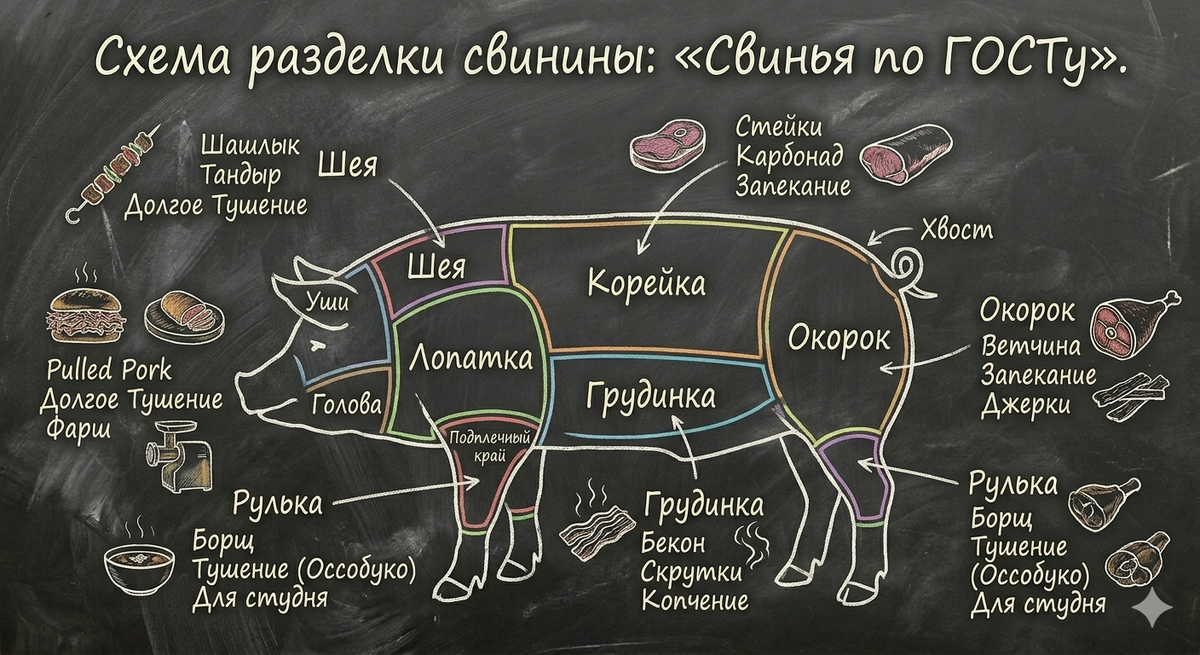 Схема разделки свинины: «Свинья по ГОСТу».
Шашлык
Тандыр
Долгое Тушение
Шея
Стейки
Карбонад
Запекание
Хвост
Уши
Шея
Корейка
Окорок
Лопатка
Грудинка
Голова
Подплечный
край
Pulled Pork
Долгое Тушение
Фарш
Окорок
Ветчина
Запекание
Джерки
Рулька
Борщ
Тушение (Оссобуко)
Для студня
Грудинка
Бекон
Скрутки
Копчение
Рулька
Борщ
Тушение
(Оссобуко)
Для студня